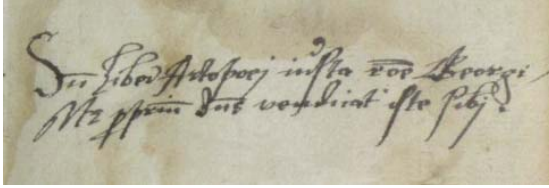 Sū liber Artopoej iusta rōe Georgi
Me proprium dn̄s vendicat iste sibj